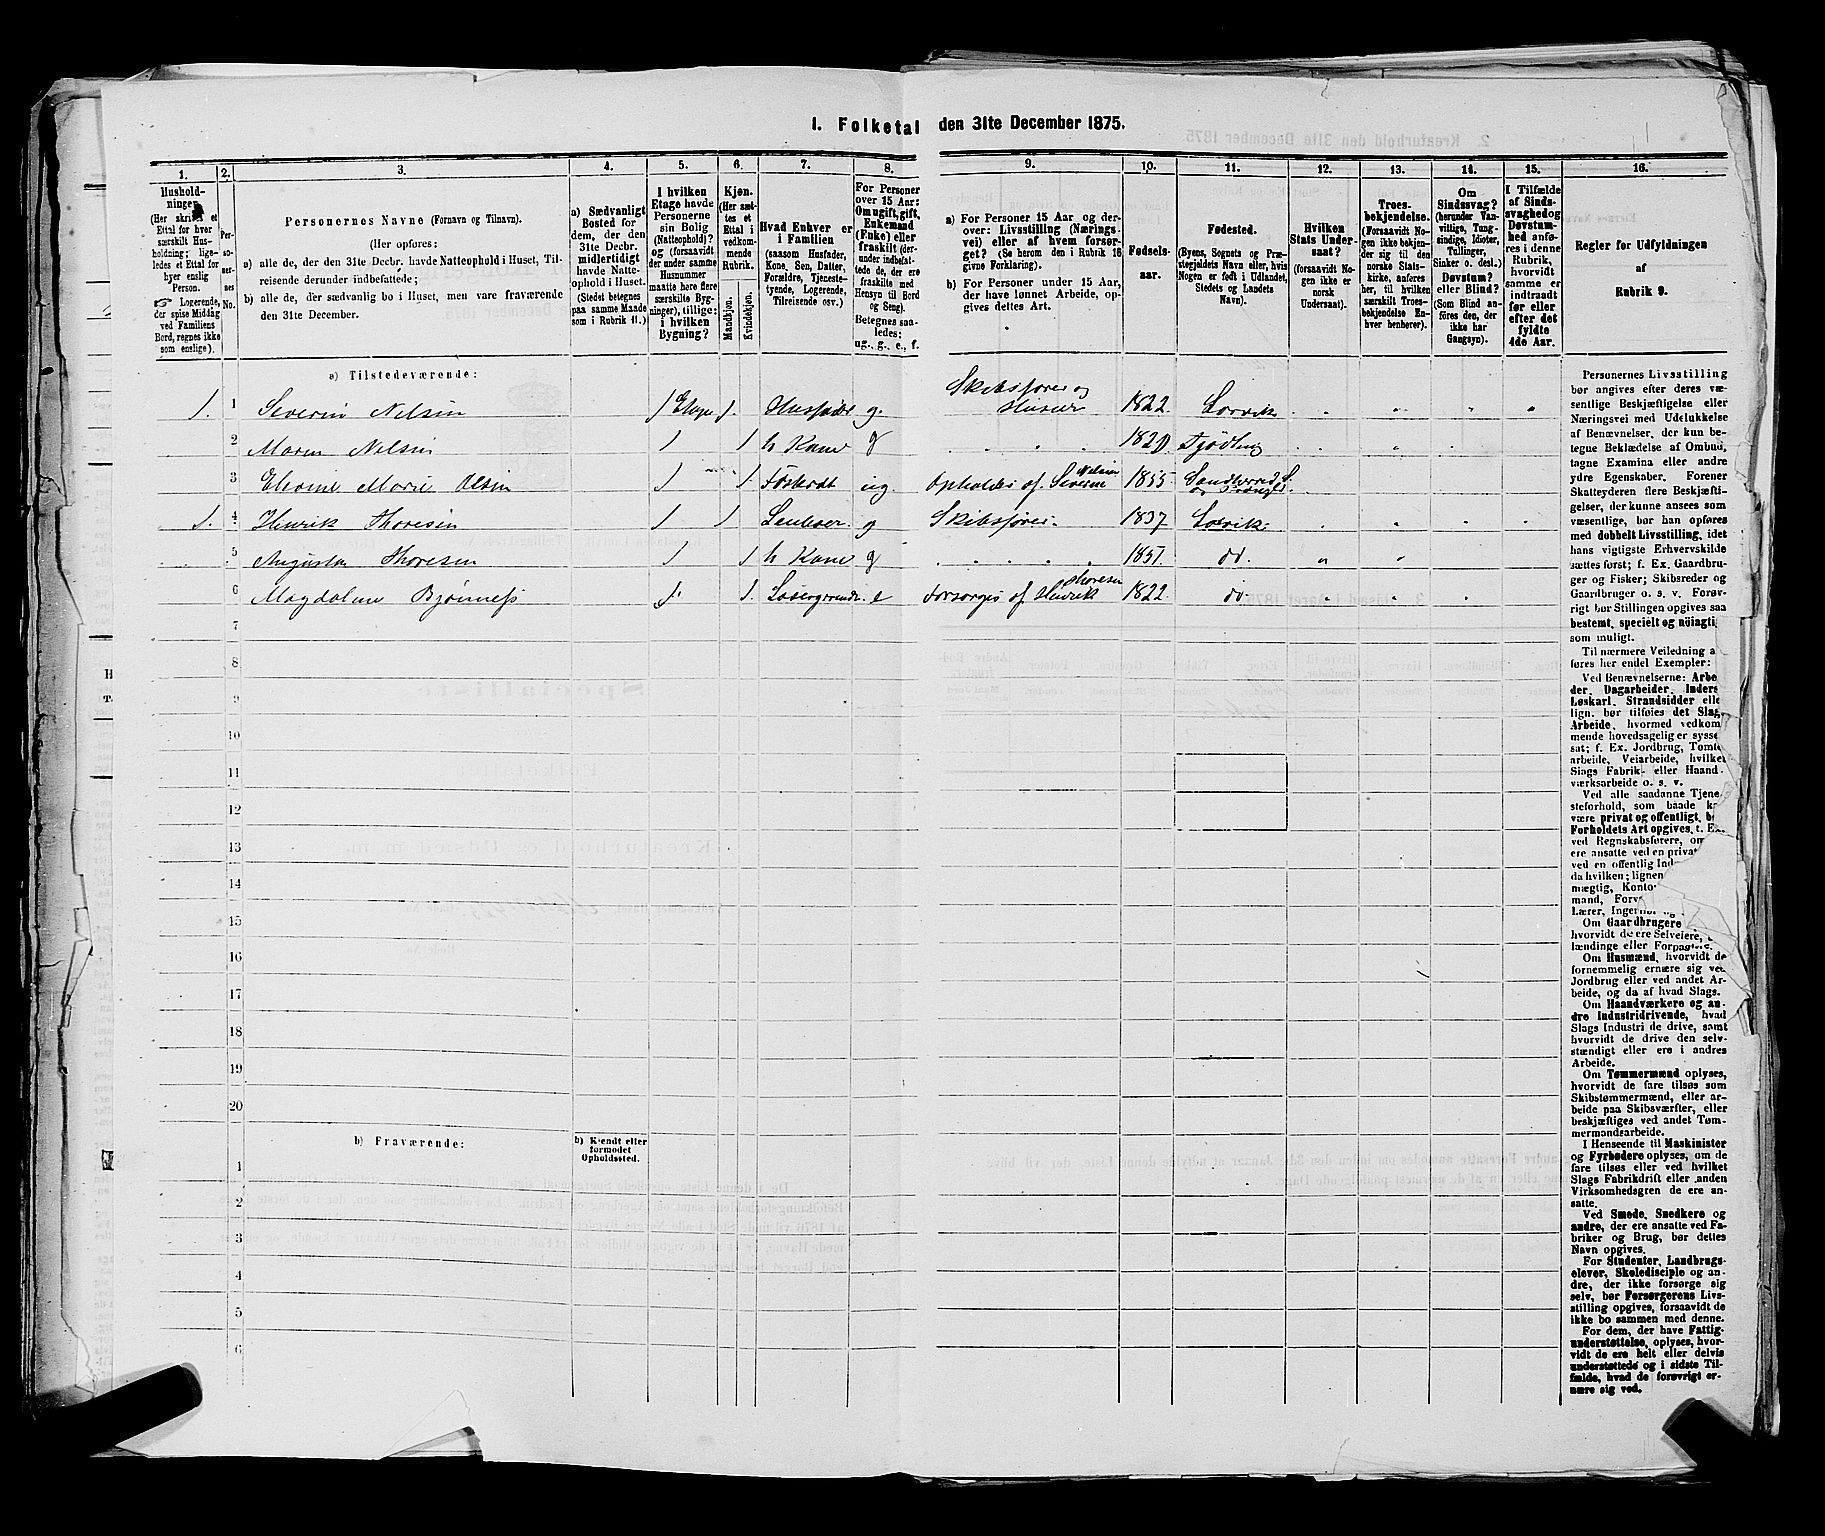 1. Folketal den 31te December 1875.
1. 2. 3. 4. 5. 6. 7. 8. 9. 10. 11. 12. 13. 14. 15. 16.
Hushold-
ninger.
(Her skrives et
Ettal for hver
særskilt Hus-
holdning; lige-
ledes et Ettal for
hver enslig
Person.
☞ Logerende,
der spise Middag
ved Familiens
Bord, regnes ikke
som enslige).
Per-
so-
ner-
nes
No.
Personernes Navne (Fornavn og Tilnavn).
(Her opføres:
a) alle de, der den 31te Decbr. havde Natteophold i Huset, Til-
reisende derunder indbefattede;
b) alle de, der sædvanlig bo i Huset, men vare fraværende
den 31te December.
a) Sædvanligt
Bosted for
dem, der den
31te Decbr.
midlertidigt
havde Natte-
ophold i Huset.
(Stedet betegnes
paa samme Maade
som i Rubrik 11.)
I hvilken
Etage havde
Personerne
sin Bolig
(Natteophold)?
og (forsaavidt
der under samme
Husnummer
maatte høre flere
særskilte Byg-
ninger), tillige:
i hvilken
Bygning?
Kjøn.
(Her sæt-
tes et
Ettal i
vedkom-
mende
Rubrik.
Mandkjøn.
Kvindekjøn.
Hvad Enhver er
i Familien
(saasom Husfader,
Kone, Søn, Datter,
Forældre, Tjeneste-
tyende, Logerende,
Tilreisende osv.)
For Personer
over 15 Aar:
Om ugift, gift,
Enkemand
(Enke) eller
fraskilt (der-
under indbefat-
tede de, der ere
fraskilte med
Hensyn til Bord
og Seng).
Betegnes saa-
ledes:
ug., g., e., f.
a) For Personer 15 Aar og der-
over: Livsstilling (Nærings-
vei) eller af hvem forsør-
get? (Se herom den i Rubrik 16
givne Forklaring).
b) For Personer under 15 Aar,
der have lønnet Arbeide, op-
gives dettes Art.
Fødsels-
aar.
Fødested.
(Byens, Sognets og Præ-
stegjeldets Navn eller, hvis
Nogen er født i Udlandet,
Stedets og Landets
Navn).
Hvilken
Stats Under-
saat?
(forsaavidt No-
gen ikke er
norsk
Undersaat).
Troes-
bekjendelse.
(Forsaavidt No-
gen ikke bekjen-
der sig til den
norske Stats-
kirke, anføres
her, til hvilken
særskilt Troes-
bekjendelse En-
hver henhører).
Om
Sindssvag?
(herunder Van-
vittige, Tung-
sindige, Idioter,
Tullinger,
Sinker o. desl.)
Døvstum?
eller Blind?
(Som Blind an-
føres den, der
ikke har
Gangsyn).
I Tilfælde
af Sinds-
svaghed og
Døvstum-
hed anfø-
res i denne
Rubrik,
hvorvidt
samme er
indtraadt
før eller
efter det
fyldte
4de Aar.
Regler for Udfyldningen
af
Rubrik 9.
a) Tilstedeværende:
1. 1 Severin Nelsin 1 Etage 1. Husfader g. Skibsfører og Huseier 1822. Larvik
2 Maren Nelsin 1 1 h Kone g 1820 Tjødling
3 Marie Olsin 1 1. ug. Opholdes af Severin Nelsin 1855
1. 4 Henrik Thoresin 1 1 g Skibsfører. 1837 Larvik
5 Augusta Thoresen 1 1 h Kone g 1851. do.
6 Magdaline 1. 1. Logerende e Forsørges af Henrik Thoresen 1822. do
7
8
9
10
11
12
13
14
15
16
17
18
19
20
b) Fraværende:
b) Kjendt eller
formodet
Opholdssted.
1
2
3
4
5
6
Personernes Livsstilling
bør angives efter deres væ-
sentlige Beskjæftigelse eller
Næringsvei med Udelukkelse
af Benævnelser, der kun be-
tegne Beklædelse af Ombud,
tagne Examina eller andre
ydre Egenskaber. Forener
Skatteyderen flere Beskjæfti-
gelser, der kunne ansees som
væsentlige, bør han opføres
med dobbelt Livsstilling, idet
hans vigtigste Erhvervskilde
sættes først; f. Ex. Gaardbru-
ger og Fisker; Skibsreder og
Gaardbruger o. s. v. Forøv-
rigt bør Stillingen opgives saa
bestemt, specielt og nøiagtig
som muligt.
Til nærmere Veiledning a
føres her endel Exempler:
Ved Benævnelserne: Arbe
der, Dagarbeider, Inders
Løskarl, Strandsidder elle
lign. bør tilføies det Slag
Arbeide, hvormed vedkom
mende hovedsagelig er sysse
sat; f. Ex. Jordbrug, Tømte
arbeide, Veiarbeide, hvilket
Slags Fabrik- eller Haand-
værksarbeide o. s. v.
Ved alle saadanne Tjene
steforhold, som baade k
være privat og offentligt, b
Forholdets Art opgives, t. Ex
ved Regnskabsførere, om
ere ansatte ved en privat
ved en offentlig Ind
da hvilken; lignen
mægtig, Konto
mand, Forv
Lærer, Ingeniør og
Om Gaardbrugere
hvorvidt de ere Selveiere,
lændinge eller Forpagtere.
Om Husmænd, hvorvidt de
fornemmelig ernære sig ved
Jordbrug eller ved andet Ar-
beide, og da af hvad Slags.
Om Haandværkere og an-
dre Industridrivende, hvad
Slags Industri de drive, samt
hvorvidt de drive den selv-
stændigt eller ere i andres
Arbeide.
Om Tømmermænd oplyses,
hvorvidt de fare tilsøs som
Skibstømmermænd, eller ar-
beide paa Skibsværfter, eller
beskjæftiges ved andet Tøm-
mermandsarbeide.
I Henseende til Maskinister
og Fyrbødere oplyses, om de
fare tilsøs eller ved hvilket
Slags Fabrikdrift eller anden
Virksomhedsgren de ere an-
satte.
Ved Smede, Snedkere og
andre, der ere ansatte ved Fa-
briker og Brug, bør dettes
Navn opgives.
For Studenter, Landbrugs-
elever, Skoledisciple og an-
dre, der ikke forsørge sig
selv, bør Forsørgerens Livs-
stilling opgives, forsaavidt de
ikke bo sammen med denne.
For dem, der have Fattig-
understøttelse, oplyses, hvor-
vidt de ere helt eller delvis
understøttede og i sidste Til-
fælde, hvad de forøvrigt er-
nære sig ved.